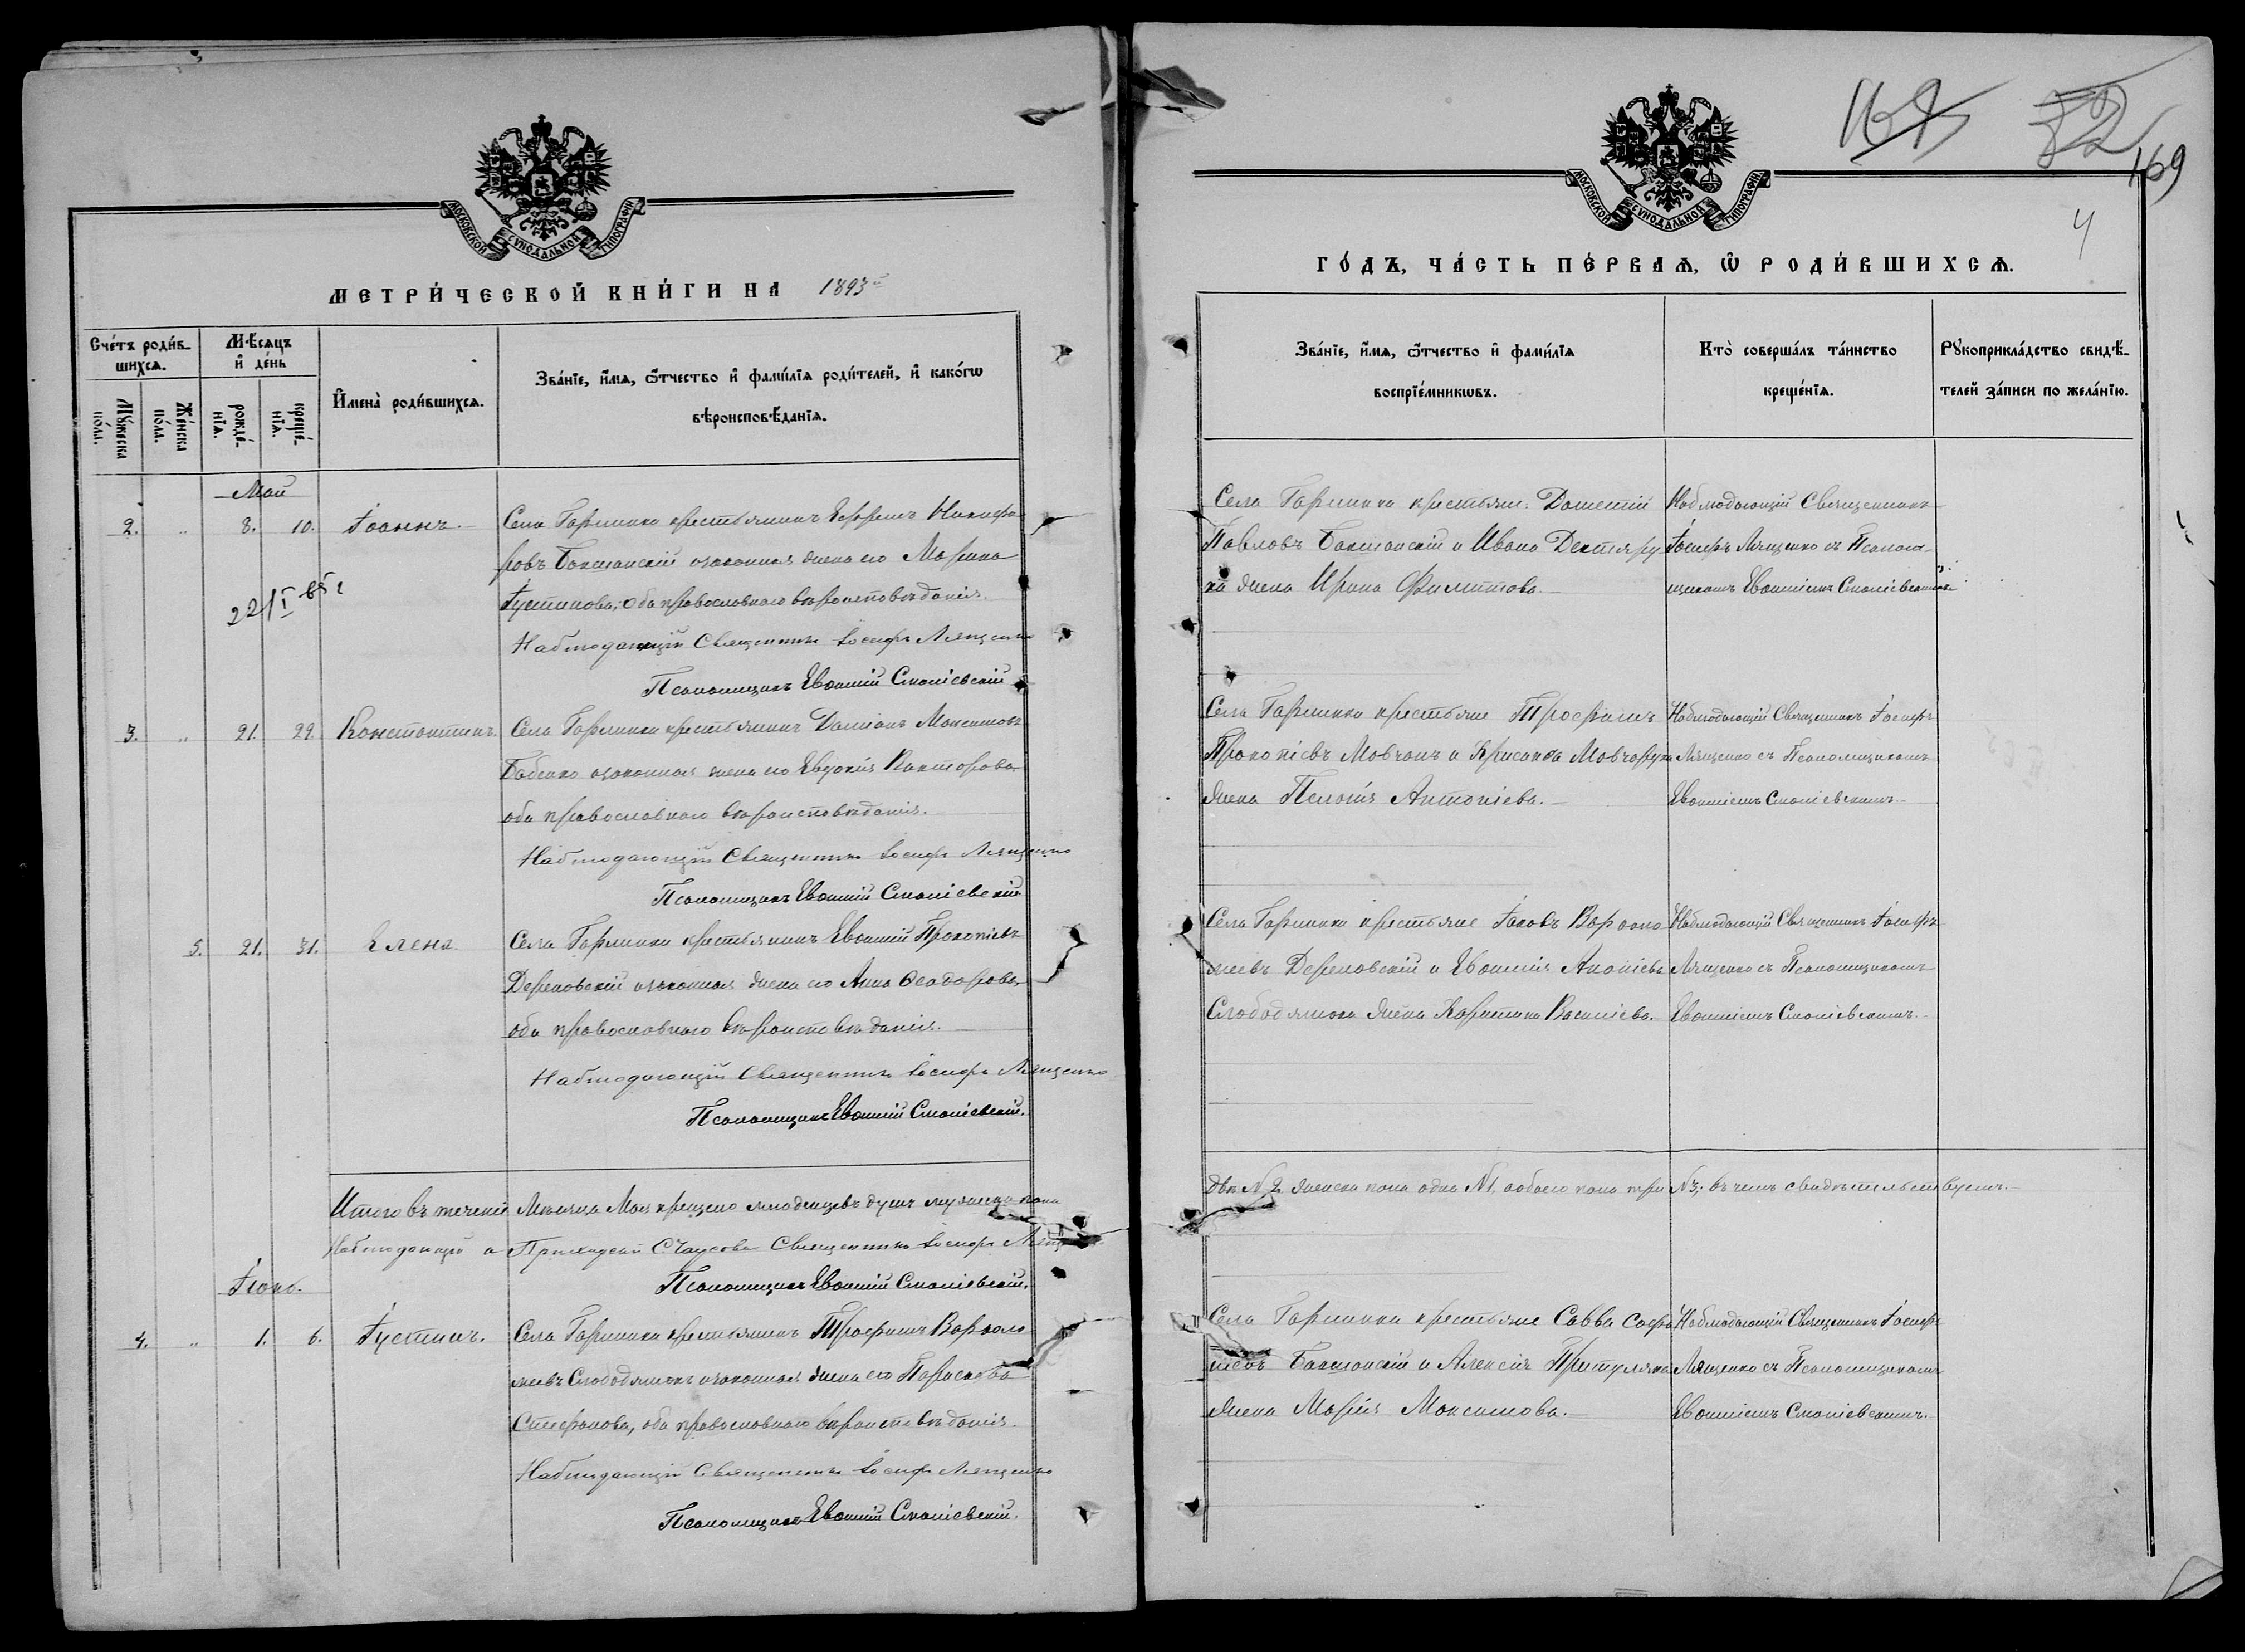 МОСКОВСКОЙ СѴНОДАЛЬНОЙ ТИПОГРАФІИ
МЕТРИ́ЧЕСКОЙ КНИ́ГИ НА 1893
Сче́тъ роди́вшихсѧ.
Мꙋ́жеска по́ла.
Же́нска по́ла.
Мѣ́сѧцъ и҆ де́нь
рожде́нїѧ.
креще́нїѧ.
И҆мена̀ роди́вшихсѧ.
Зва́нїе, и҆́мѧ, ѻ҆́тчество и҆ фами́лїѧ роди́телей, и҆ како́гѡ
вѣроисповѣ́данїѧ.
Май
2. " 8. 10. Іоаннъ. Села Гармаки крестьянинъ Ефремъ Никифо
ровъ Бакшанскій и законная жена его Марина
Іустинова; оба православнаго вѣроисповѣданія.
22/I
Наблюдающій Священникъ Іосифъ Лященко
Псаломщикъ Евѳимій Смоліевскій
3. " 21. 29. Константинъ. Села Гармаки крестьянинъ Даміанъ Максимовъ
Бабенко и законная жена его Евдокія Викторова
оба православнаго вѣроисповѣданія.
Наблюдающій Священникъ Іосифъ Лященко
Псаломщикъ Евѳимій Смоліевскій
5. 21. 31. Елена Села Гармаки крестьянинъ Евѳимій Прокопіевъ
Дереновскій и законная жена его Анна Ѳеодорова
оба православнаго вѣроисповѣданія.
Наблюдающій Священникъ Іосифъ Лященко
Псаломщикъ Евѳимій Смоліевскій.
Итого въ теченіи Мѣсяца Мая крещено младенцевъ душъ мужеска пола
Наблюдающій и Приходскій Священникъ Іосифъ
Псаломщикъ Евѳимій Смоліевскій.
Іюнь.
4. " 1. 6. Іустинъ. Села Гармаки крестьянинъ Трофимъ Варѳоло
меевъ Слободянюкъ и законная жена его Параскева
Стефанова, оба православнаго вѣроисповѣданія.
Наблюдающій Священникъ Іосифъ Лященко
Псаломщикъ Евѳимій Смоліевскій.
169
4
МОСКОВСКОЙ СѴНОДАЛЬНОЙ ТИПОГРАФІИ
ГО́ДЪ, ЧА́СТЬ ПЕ́РВАѦ, Ѽ РОДИ́ВШИХСѦ.
Зва́нїе, и҆́мѧ, ѻ҆́тчество и҆ фами́лїѧ
воспрїе́мникѡвъ.
Кто̀ соверша́лъ та́инство
креще́нїѧ.
Рꙋкоприкла́дство свидѣ́телей за́писи по жела́нїю.
Села Гармаки крестьяне: Дометій
Павловъ Бакшанскій и Ивана Дектяру
ка жена Ирина Филиппова.
Наблюдающій Священникъ
Іосифъ Лященко съ Псалом
щикомъ Евѳиміемъ Смоліевскимъ
Села Гармаки крестьяне Трофимъ
Прокопіевъ Мовчанъ и Хрисанфа Мовчарука
жена Пелагія Антоніева.
Наблюдающій Священникъ Іосифъ
Лященко съ Псаломщикомъ
Евѳиміемъ Смоліевскимъ.
Села Гармаки крестьяне Іаковъ Варѳоло
меевъ Дереновскій и Евѳимія
Слободянюка жена Харитина Василіева.
Наблюдающій Священникъ Іосифъ
Лященко съ Псаломщикомъ
Евѳиміемъ Смоліевскимъ.
два № 2 женска пола одна № 1, обоего пола три № 3; въ чемъ свидѣтельствуемъ.
Села Гармаки крестьяне Савва Софро
ніевъ Бакшанскій и Алексія Притуляка
жена Марія Максимова.
Наблюдающій Священникъ Іосифъ
Лященко съ Псаломщикомъ
Евѳиміемъ Смоліевскимъ.